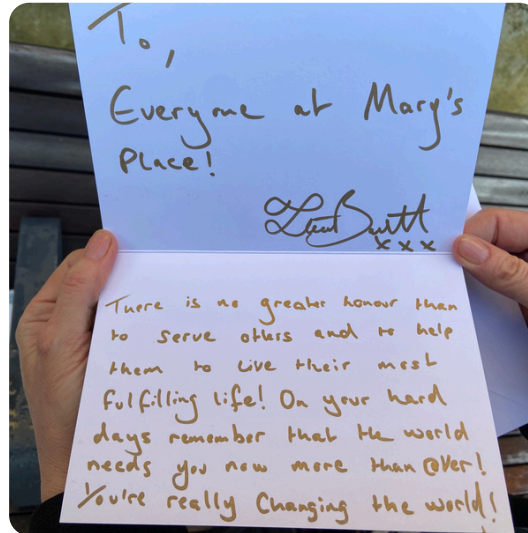 To,
Everyone at Mary's
Place!
xxx
There is no greater honour than
to serve others and to help
them to live their most
fulfilling life! On your hard
days remember that the world
needs you now more than ever!
You're really changing the world!